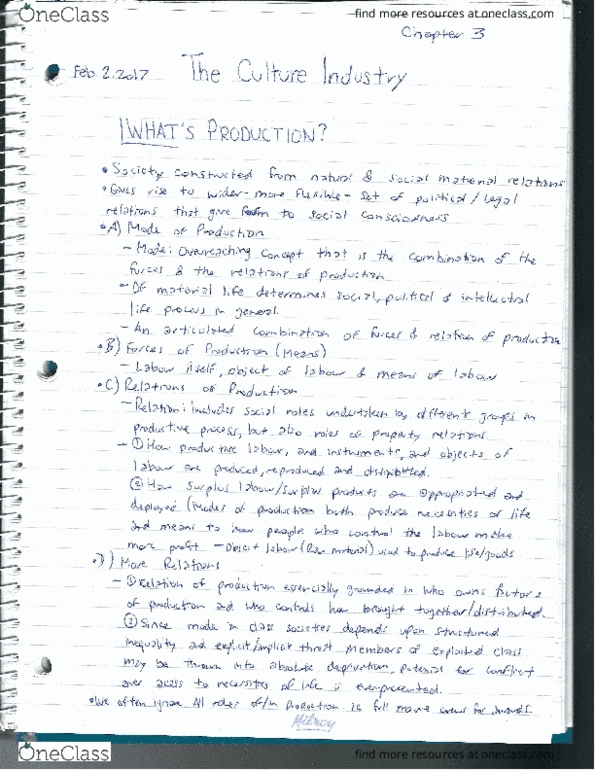 OneClass
find more resources at oneclass.com
Chapter 3
Feb. 2. 2017 The Culture Industry
WHAT'S PRODUCTION?
• Society constructed from natural & social material relations
• Gives rise to wider - more flexible - set of political / legal
relations that give form to social consciousness
• A) Mode of Production
- Mode: Overreaching concept that is the combination of the
forces & the relations of production
- Of material life determines social, political & intellectual
life process in general.
- An articulated combination of forces & relation of production
• B) Forces of Production (Means)
- Labour itself, object of labour & means of labour
• C) Relations of Production
- Relation: Includes social roles undertaken by different groups in
productive process, but also roles of property relations.
- ① How productive labour, and instruments, and objects of
labour are produced, reproduced and distributed.
② How surplus labour/surplus products are appropriated and
deployed (Modes of production both produce necessities of life
and means to how people who control the labour make
more profit - Object labour (Raw material) used to produce life/goods
• D) More Relations
- ① Relation of production essentially grounded in who owns factors
of production and who controls how brought together/distributed.
② Since mode in class societies depends upon structured
inequality and explicit/implicit threat members of exploited class
may be thrown into absolute deprivation, potential for conflict
over access to necessities of life is
• We often ignore All roles production is full
Milroy
OneClass
find more resources at oneclass.com